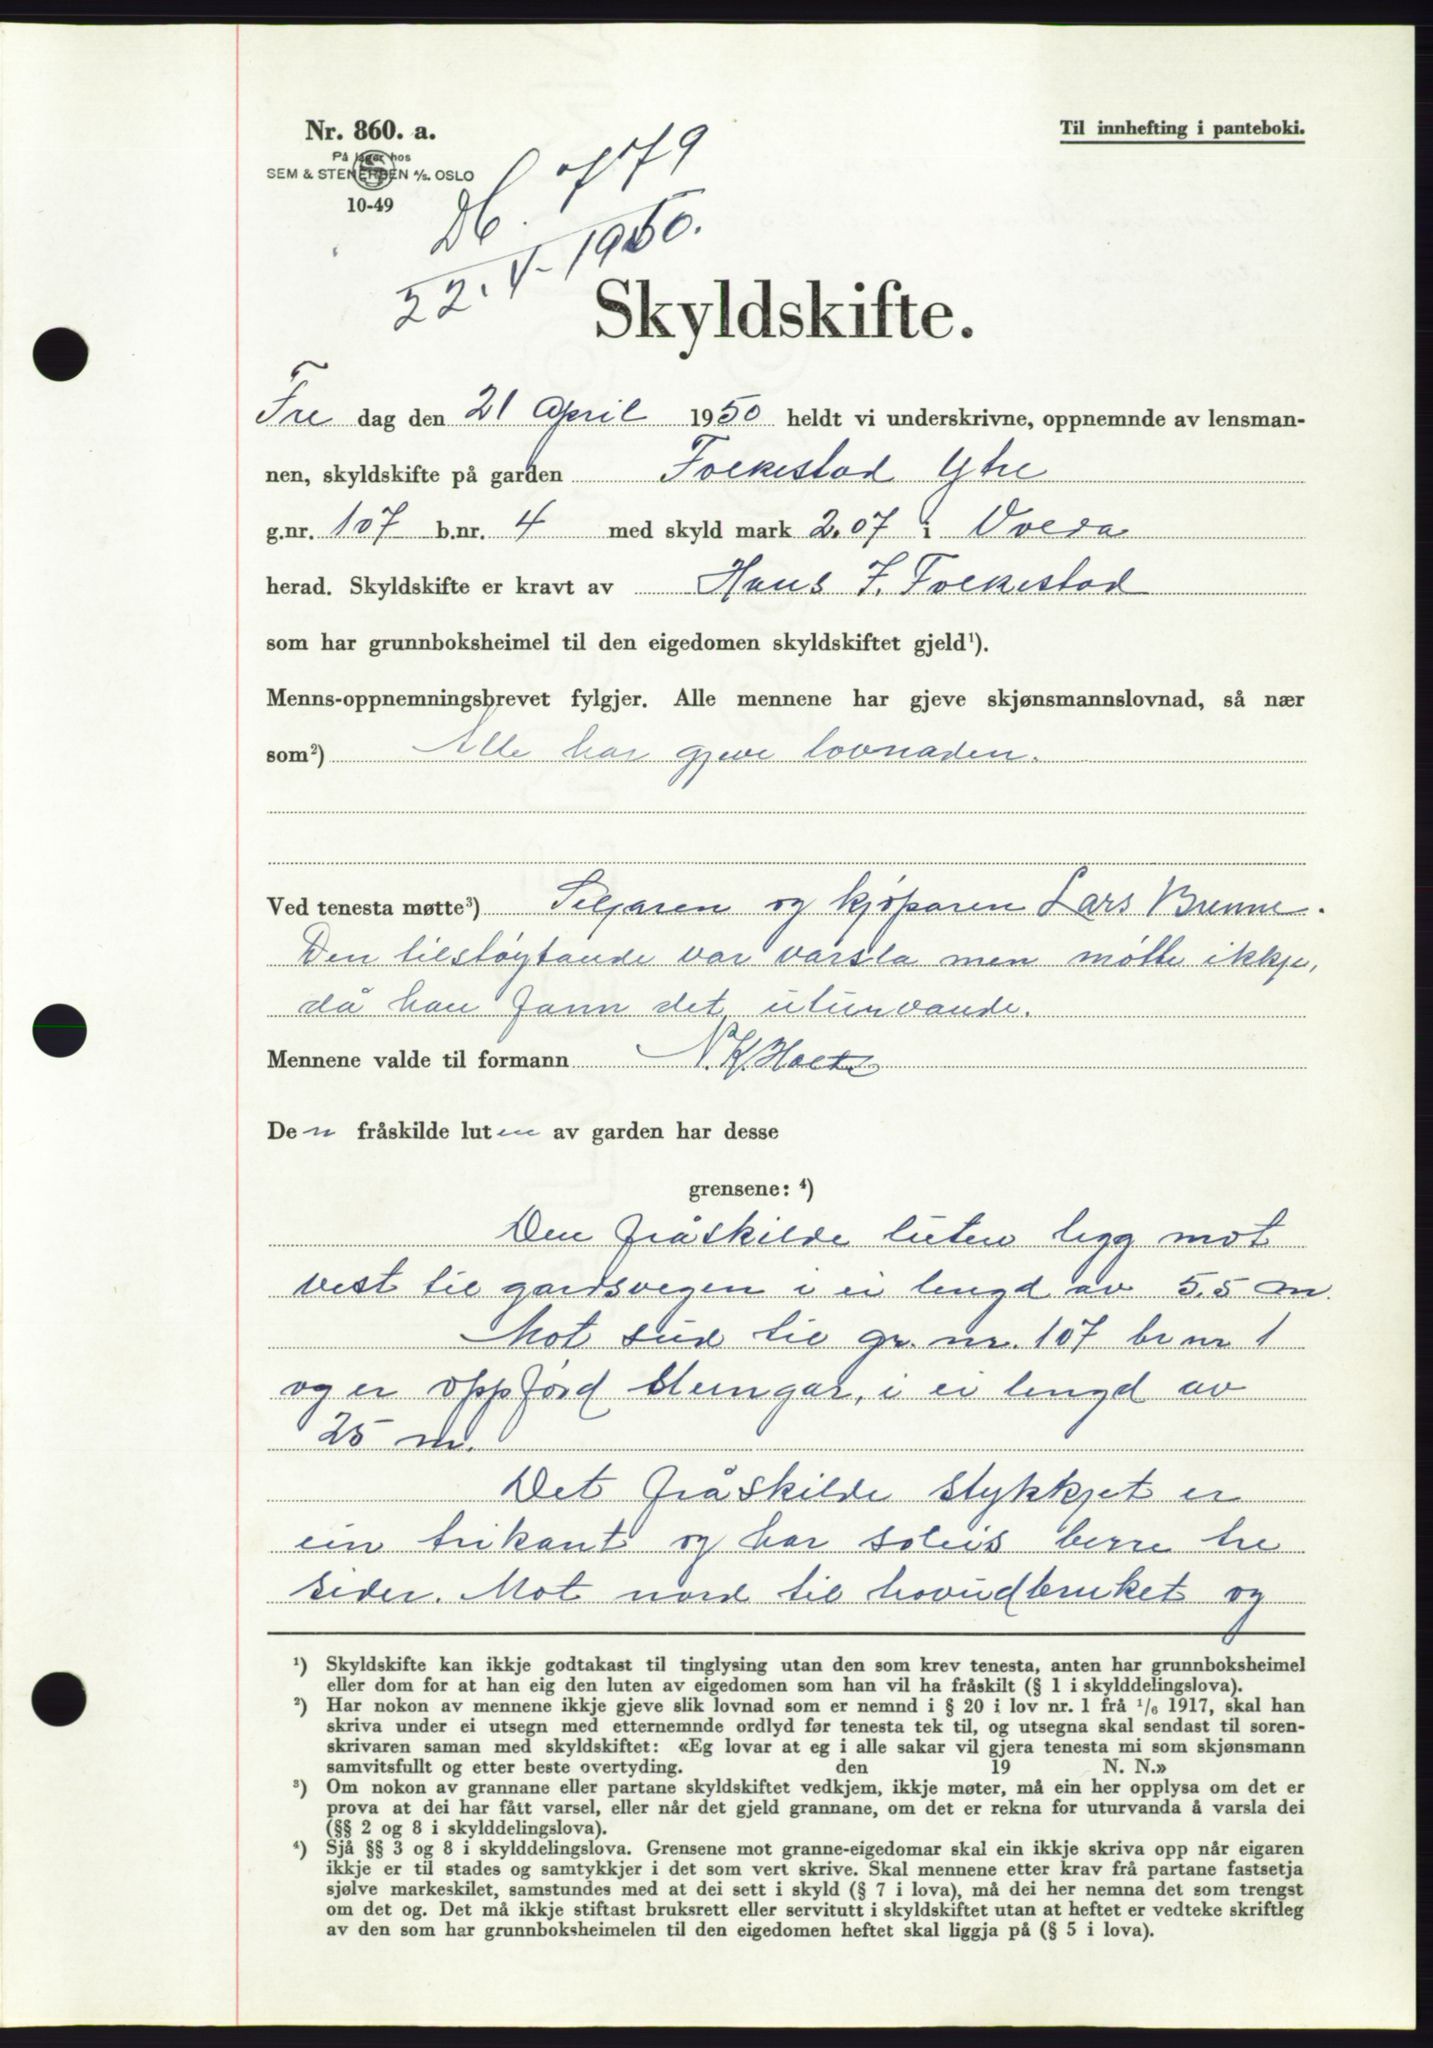 Nr. 860. a.
På lager hos
SEM & STENERSEN A/S. OSLO
10-49
Til innhefting i panteboki.
Db. 779
22. V - 1950.
Skyldskifte.
Fre dag den 21 April 1950 heldt vi underskrivne, oppnemnde av lensman-
nen, skyldskifte på garden Folkestad Ytre
g.nr. 107 b.nr. 4 med skyld mark 2.07 i Volda
herad. Skyldskifte er kravt av Hans J. Folkestad
som har grunnboksheimel til den eigedomen skyldskiftet gjeld¹).
Menns-oppnemningsbrevet fylgjer. Alle mennene har gjeve skjønsmannslovnad, så nær
som²) Alle har gjeve lovnaden.
Ved tenesta møtte³) Seljaren og kjøparen Lars Brenne.
Den tilstøytande var varsla men møtte ikkje,
då han fann det uturvande.
Mennene valde til formann N. K. Holte
Den fråskilde luten av garden har desse
grensene: ⁴)
Den fråskilde luten ligg mot
vest til gardsvegen i ei lengd av 5.5 m.
Mot sud til gr. nr. 107 br nr 1
og er oppførd steingar, i ei lengd av
25 m.
Det fråskilde stykkjet er
ein trikant og har soleis berre tre
sider. Mot nord til hovudbruket og
¹) Skyldskifte kan ikkje godtakast til tinglysing utan den som krev tenesta, anten har grunnboksheimel
eller dom for at han eig den luten av eigedomen som han vil ha fråskilt (§ 1 i skylddelingslova).
²) Har nokon av mennene ikkje gjeve slik lovnad som er nemnd i § 20 i lov nr. 1 frå 1/6 1917, skal han
skriva under ei utsegn med etternemnde ordlyd før tenesta tek til, og utsegna skal sendast til soren-
skrivaren saman med skyldskiftet: «Eg lovar at eg i alle sakar vil gjera tenesta mi som skjønsmann
samvitsfullt og etter beste overtyding. den 19 N. N.»
³) Om nokon av grannane eller partane skyldskiftet vedkjem, ikkje møter, må ein her opplysa om det er
prova at dei har fått varsel, eller når det gjeld grannane, om det er rekna for uturvanda å varsla dei
(§§ 2 og 8 i skylddelingslova).
⁴) Sjå §§ 3 og 8 i skylddelingslova. Grensene mot granne-eigedomar skal ein ikkje skriva opp når eigaren
ikkje er til stades og samtykkjer i det som vert skrive. Skal mennene etter krav frå partane fastsetja
sjølve markeskilet, samstundes med at dei sett i skyld (§ 7 i lova), må dei her nemna det som trengst
om det og. Det må ikkje stiftast bruksrett eller servitutt i skyldskiftet utan at heftet er vedteke skriftleg
av den som har grunnboksheimelen til den eigedomen heftet skal liggja på (§ 5 i lova).